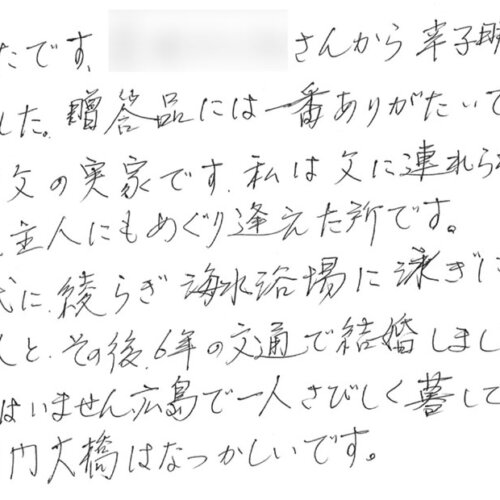 たです、さんから辛子明
した。贈答品には一番ありがたいで
父の実家です。私は父に連れられ
主人にもめぐり逢えた所です。
代に綾らぎ海水浴場に泳ぎに
人と、その後、6年の交通で結婚しまし
はいません広島で一人さびしく暮して
門大橋はなつかしいです。